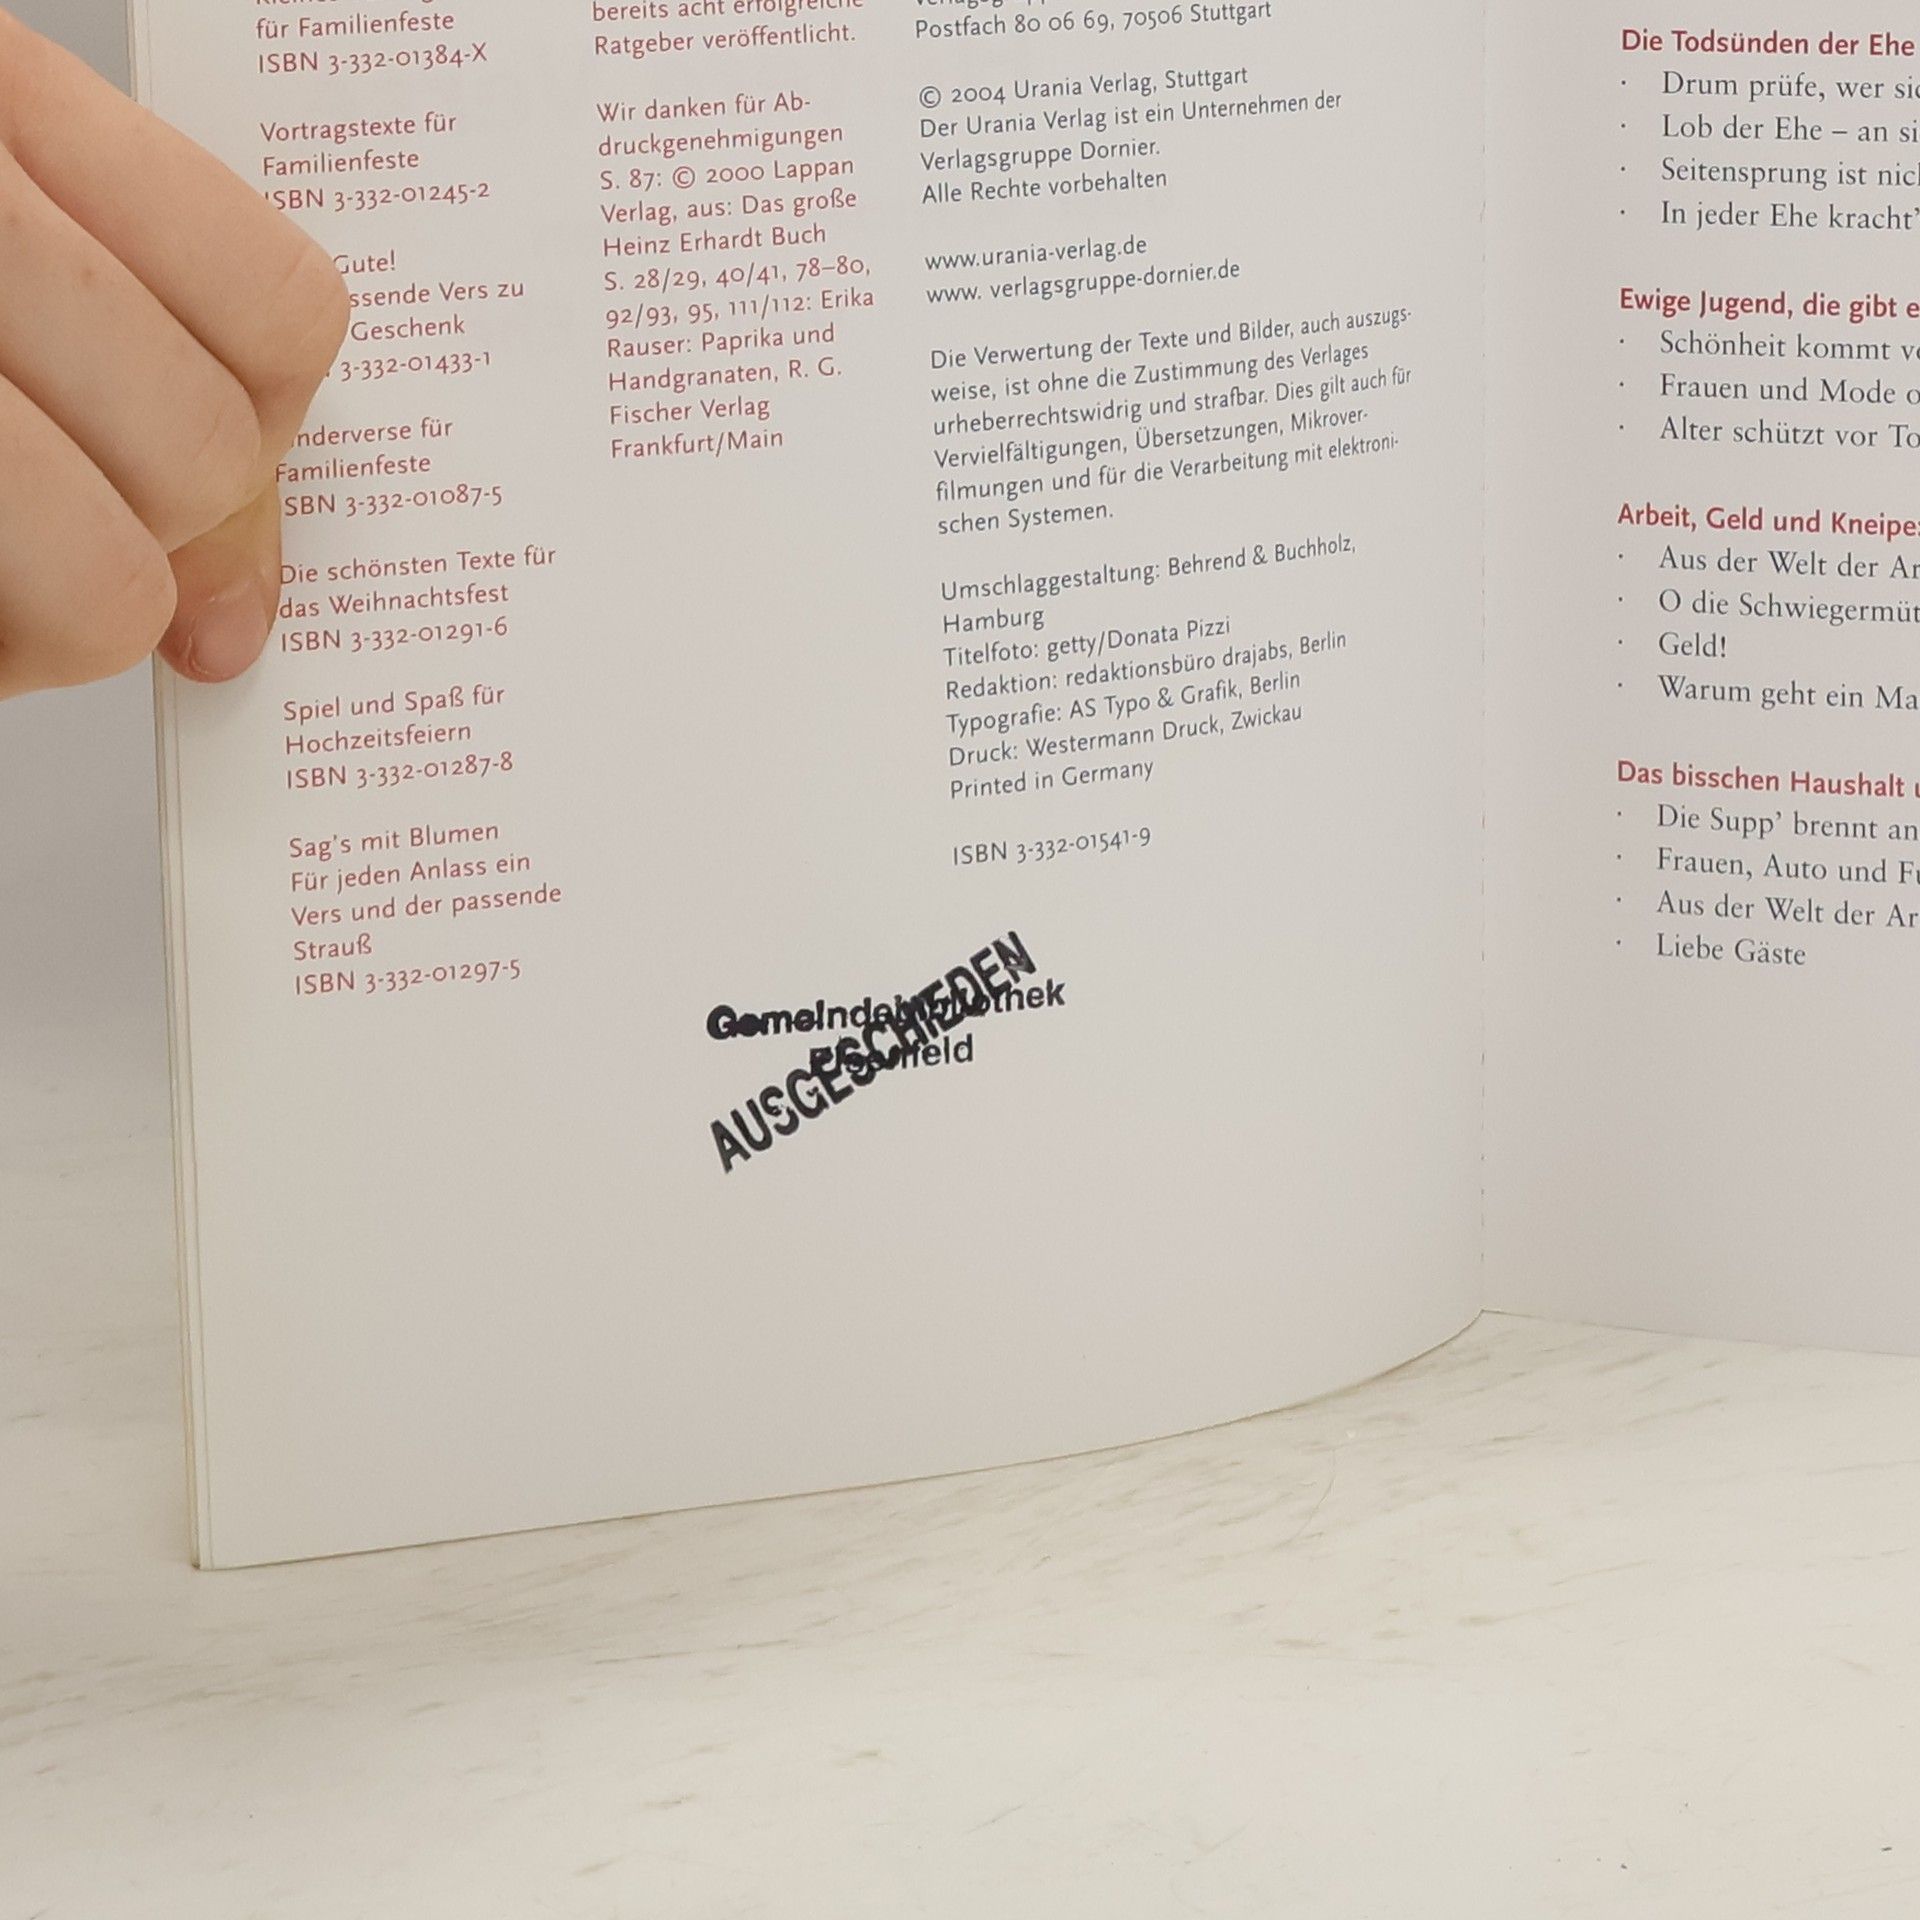 für Familienfeste
ISBN 3-332-01384-X
Vortragstexte für
Familienfeste
ISBN 3-332-01245-2
Gute!
ssende Vers zu
Geschenk
3-332-01433-1
nderverse für
Familienfeste
SBN 3-332-01087-5
Die schönsten Texte für
das Weihnachtsfest
ISBN 3-332-01291-6
Spiel und Spaß für
Hochzeitsfeiern
ISBN 3-332-01287-8
Sag's mit Blumen
Für jeden Anlass ein
Vers und der passende
Strauß
ISBN 3-332-01297-5
bereits acht erfolgreiche
Ratgeber veröffentlicht.
Wir danken für Ab-
druckgenehmigungen
S. 87: © 2000 Lappan
Verlag, aus: Das große
Heinz Erhardt Buch
S. 28/29, 40/41, 78–80,
92/93, 95, 111/112: Erika
Rauser: Paprika und
Handgranaten, R. G.
Fischer Verlag
Frankfurt/Main
Postfach 80 06 69, 70506 Stuttgart
© 2004 Urania Verlag, Stuttgart
Der Urania Verlag ist ein Unternehmen der
Verlagsgruppe Dornier.
Alle Rechte vorbehalten
www.urania-verlag.de
www. verlagsgruppe-dornier.de
Die Verwertung der Texte und Bilder, auch auszugs-
weise, ist ohne die Zustimmung des Verlages
urheberrechtswidrig und strafbar. Dies gilt auch für
Vervielfältigungen, Übersetzungen, Mikrover-
filmungen und für die Verarbeitung mit elektroni-
schen Systemen.
Umschlaggestaltung: Behrend & Buchholz,
Hamburg
Titelfoto: getty/Donata Pizzi
Redaktion: redaktionsbüro drajabs, Berlin
Typografie: AS Typo & Grafik, Berlin
Druck: Westermann Druck, Zwickau
Printed in Germany
ISBN 3-332-01541-9
Gemeindebibliothek
AUSGESCHIEDEN
Die Todsünden der Ehe
· Drum prüfe, wer sic
· Lob der Ehe – an si
· Seitensprung ist nicl
· In jeder Ehe kracht’
Ewige Jugend, die gibt e
· Schönheit kommt vo
· Frauen und Mode o
· Alter schützt vor To
Arbeit, Geld und Kneipe:
· Aus der Welt der Ar
· O die Schwiegermüt
· Geld!
· Warum geht ein Ma
Das bisschen Haushalt u
· Die Supp’ brennt an
· Frauen, Auto und Fu
· Aus der Welt der Ar
· Liebe Gäste